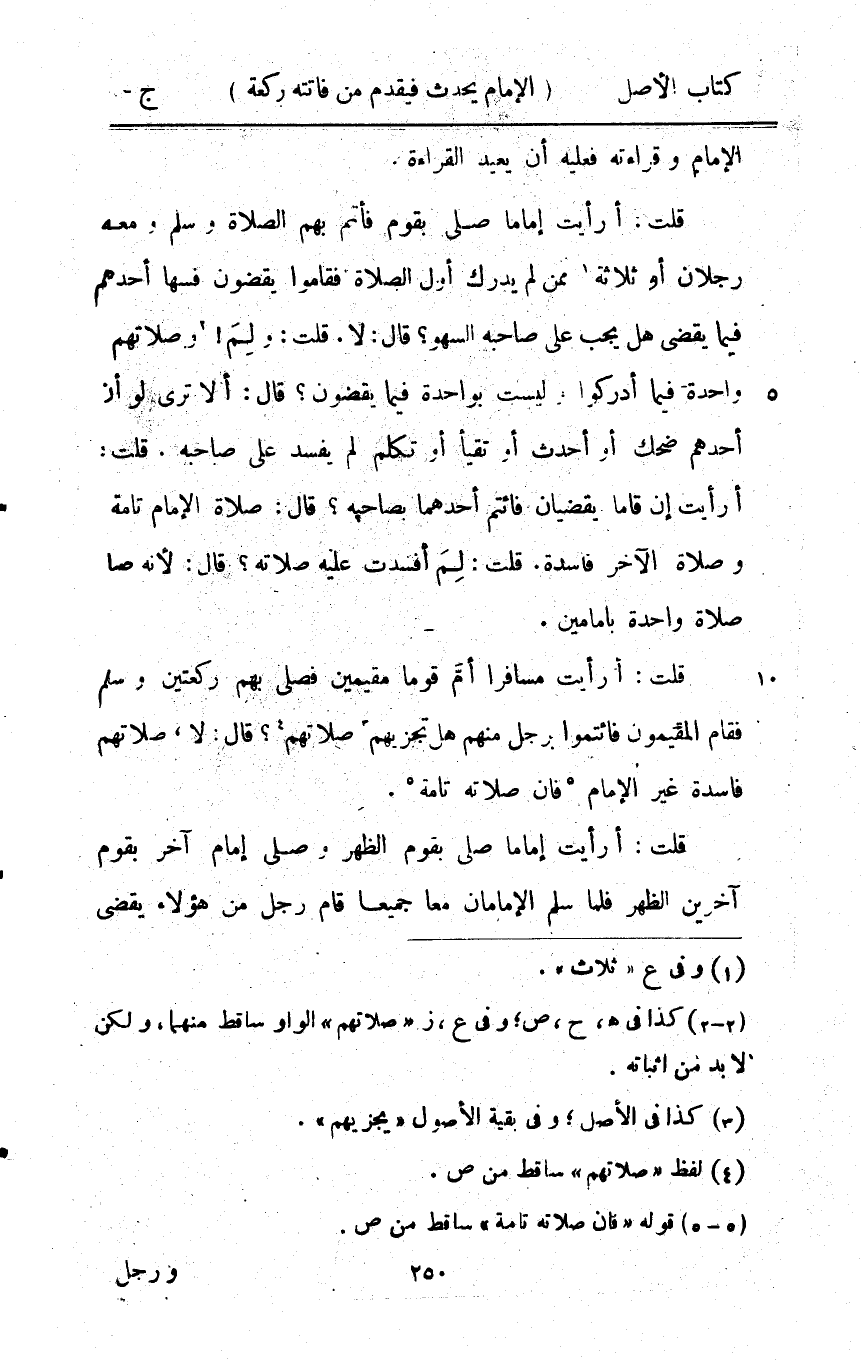 كتاب الأصل ( الإمام يحدث فيقدم من فاتته ركعة ) ج -
الإمام و قراءته فعليه أن يعيد القراءة .
قلت : أ رأيت إماما صلى بقوم فأتم بهم الصلاة و سلم و معه
رجلان أو ثلاثة ١ ممن لم يدرك أول الصلاة فقاموا يقضون فسها أحدهم
فيما يقضى هل يجب على صاحبه السهو ؟ قال : لا . قلت : و لِمَ ! ٢ و صلاتهم
٥ واحدة ٢ فيما أدركوا و ليست بواحدة فيما يقضون ؟ قال : ألا ترى لو أن
أحدهم ضحك أو أحدث أو تقيأ أو تكلم لم يفسد على صاحبه . قلت :
أ رأيت إن قاما يقضيان فائتم أحدهما بصاحبه ؟ قال : صلاة الإمام تامة
و صلاة الآخر فاسدة . قلت : لِمَ أفسدت عليه صلاته ؟ قال : لأنه صلى
صلاة واحدة بامامين .
١٠ قلت : أ رأيت مسافرا أمَّ قوما مقيمين فصلى بهم ركعتين و سلم
فقام المقيمون فائتموا برجل منهم هل تجزيهم ٣ صلاتهم ٤ ؟ قال : لا ، صلاتهم
فاسدة غير الإمام ٥ فان صلاته تامة ٥ .
قلت : أ رأيت إماما صلى بقوم الظهر و صلى إمام آخر بقوم
آخرين الظهر فلما سلم الإمامان معا جميعا قام رجل من هؤلاء يقضى
(١) و فى ع « ثلاث » .
(٢-٢) كذا فى ه ، ح ، ص ؛ و فى ع ، ز « صلاتهم » الواو ساقط منهما ، و لكن
لا بد من اثباته .
(٣) كذا فى الأصل ؛ و فى بقية الأصول « يجزيهم » .
(٤) لفظ « صلاتهم » ساقط من ص .
(٥-٥) قوله « فان صلاته تامة » ساقط من ص .
٢٥٠ و رجل